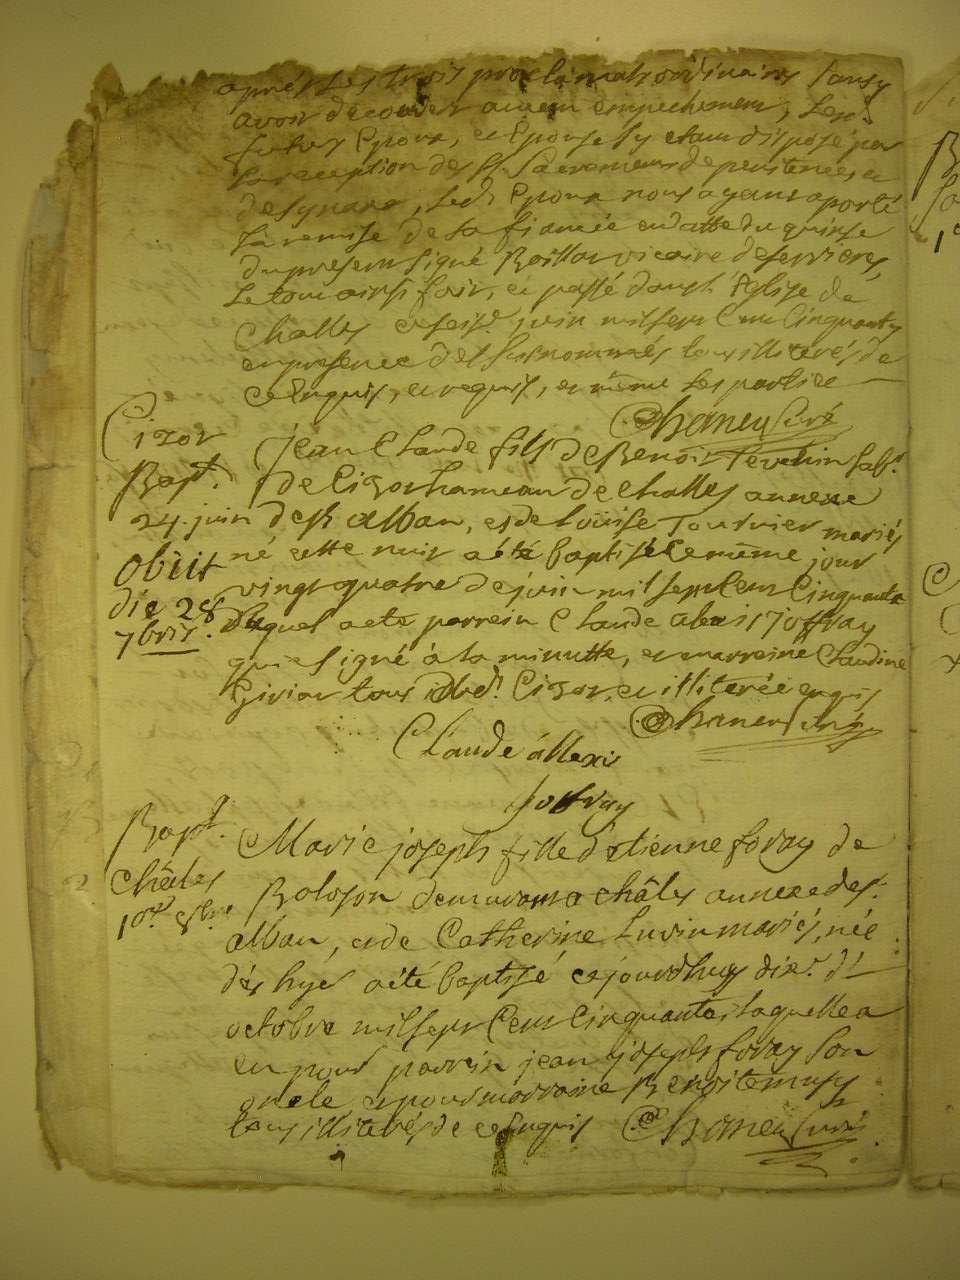 aprés les trois proclamations ordinaires sans y
avoir decouvert aucun empechement, lesd.
futurs Epoux, et Epouse sy etant disposé par
la reception des Sts. Sacremens de penitence, et
ledt Epoux nous ayant aporté
la remise de la fiancée en datte du quinse
du present signé vicaire de serriéres,
le tout ainsi fait, et passé dans lad. Eglise de
Challes ce seise. juin mil sept Cent Cinquante
en presence des susnommés tous illiterés de
ce Enquis, et requis, et même les parties
Chaneu Curé
Cizor
Bapt.
24. juin
obiit
die 28
7bris.
Jean Claude fils de Benoit Tevenin lab.r
de Cizor hameau de Challes annexe
de St alban, et de Loüise Tournier mariés
né cette nuit a été baptisé le même jour
vingt quatre de juin mil sept Cent Cinquante
duquel a eté parrein Claude alexis joffray
qui a signé à la minutte, et marreine Claudine
tous dud. Cizor, et illiterée enquis
Chaneu Curé
Claude allexis
joffray
Bapt.
Châles
10e. 8bre
Marie joseph fille d'etienne foray de
Bolozon demeurant a Châles annexe de st.
alban, et de Catherine mariés, née
dés hyer a été baptisé cejourdhuy dix.e d'
octobre mil sept Cent Cinquante, laquelle a
eu pour parrin jean joseph foray son
oncle et pour marraine Benoite
tous illiterés de ce enquis Chaneu Curé